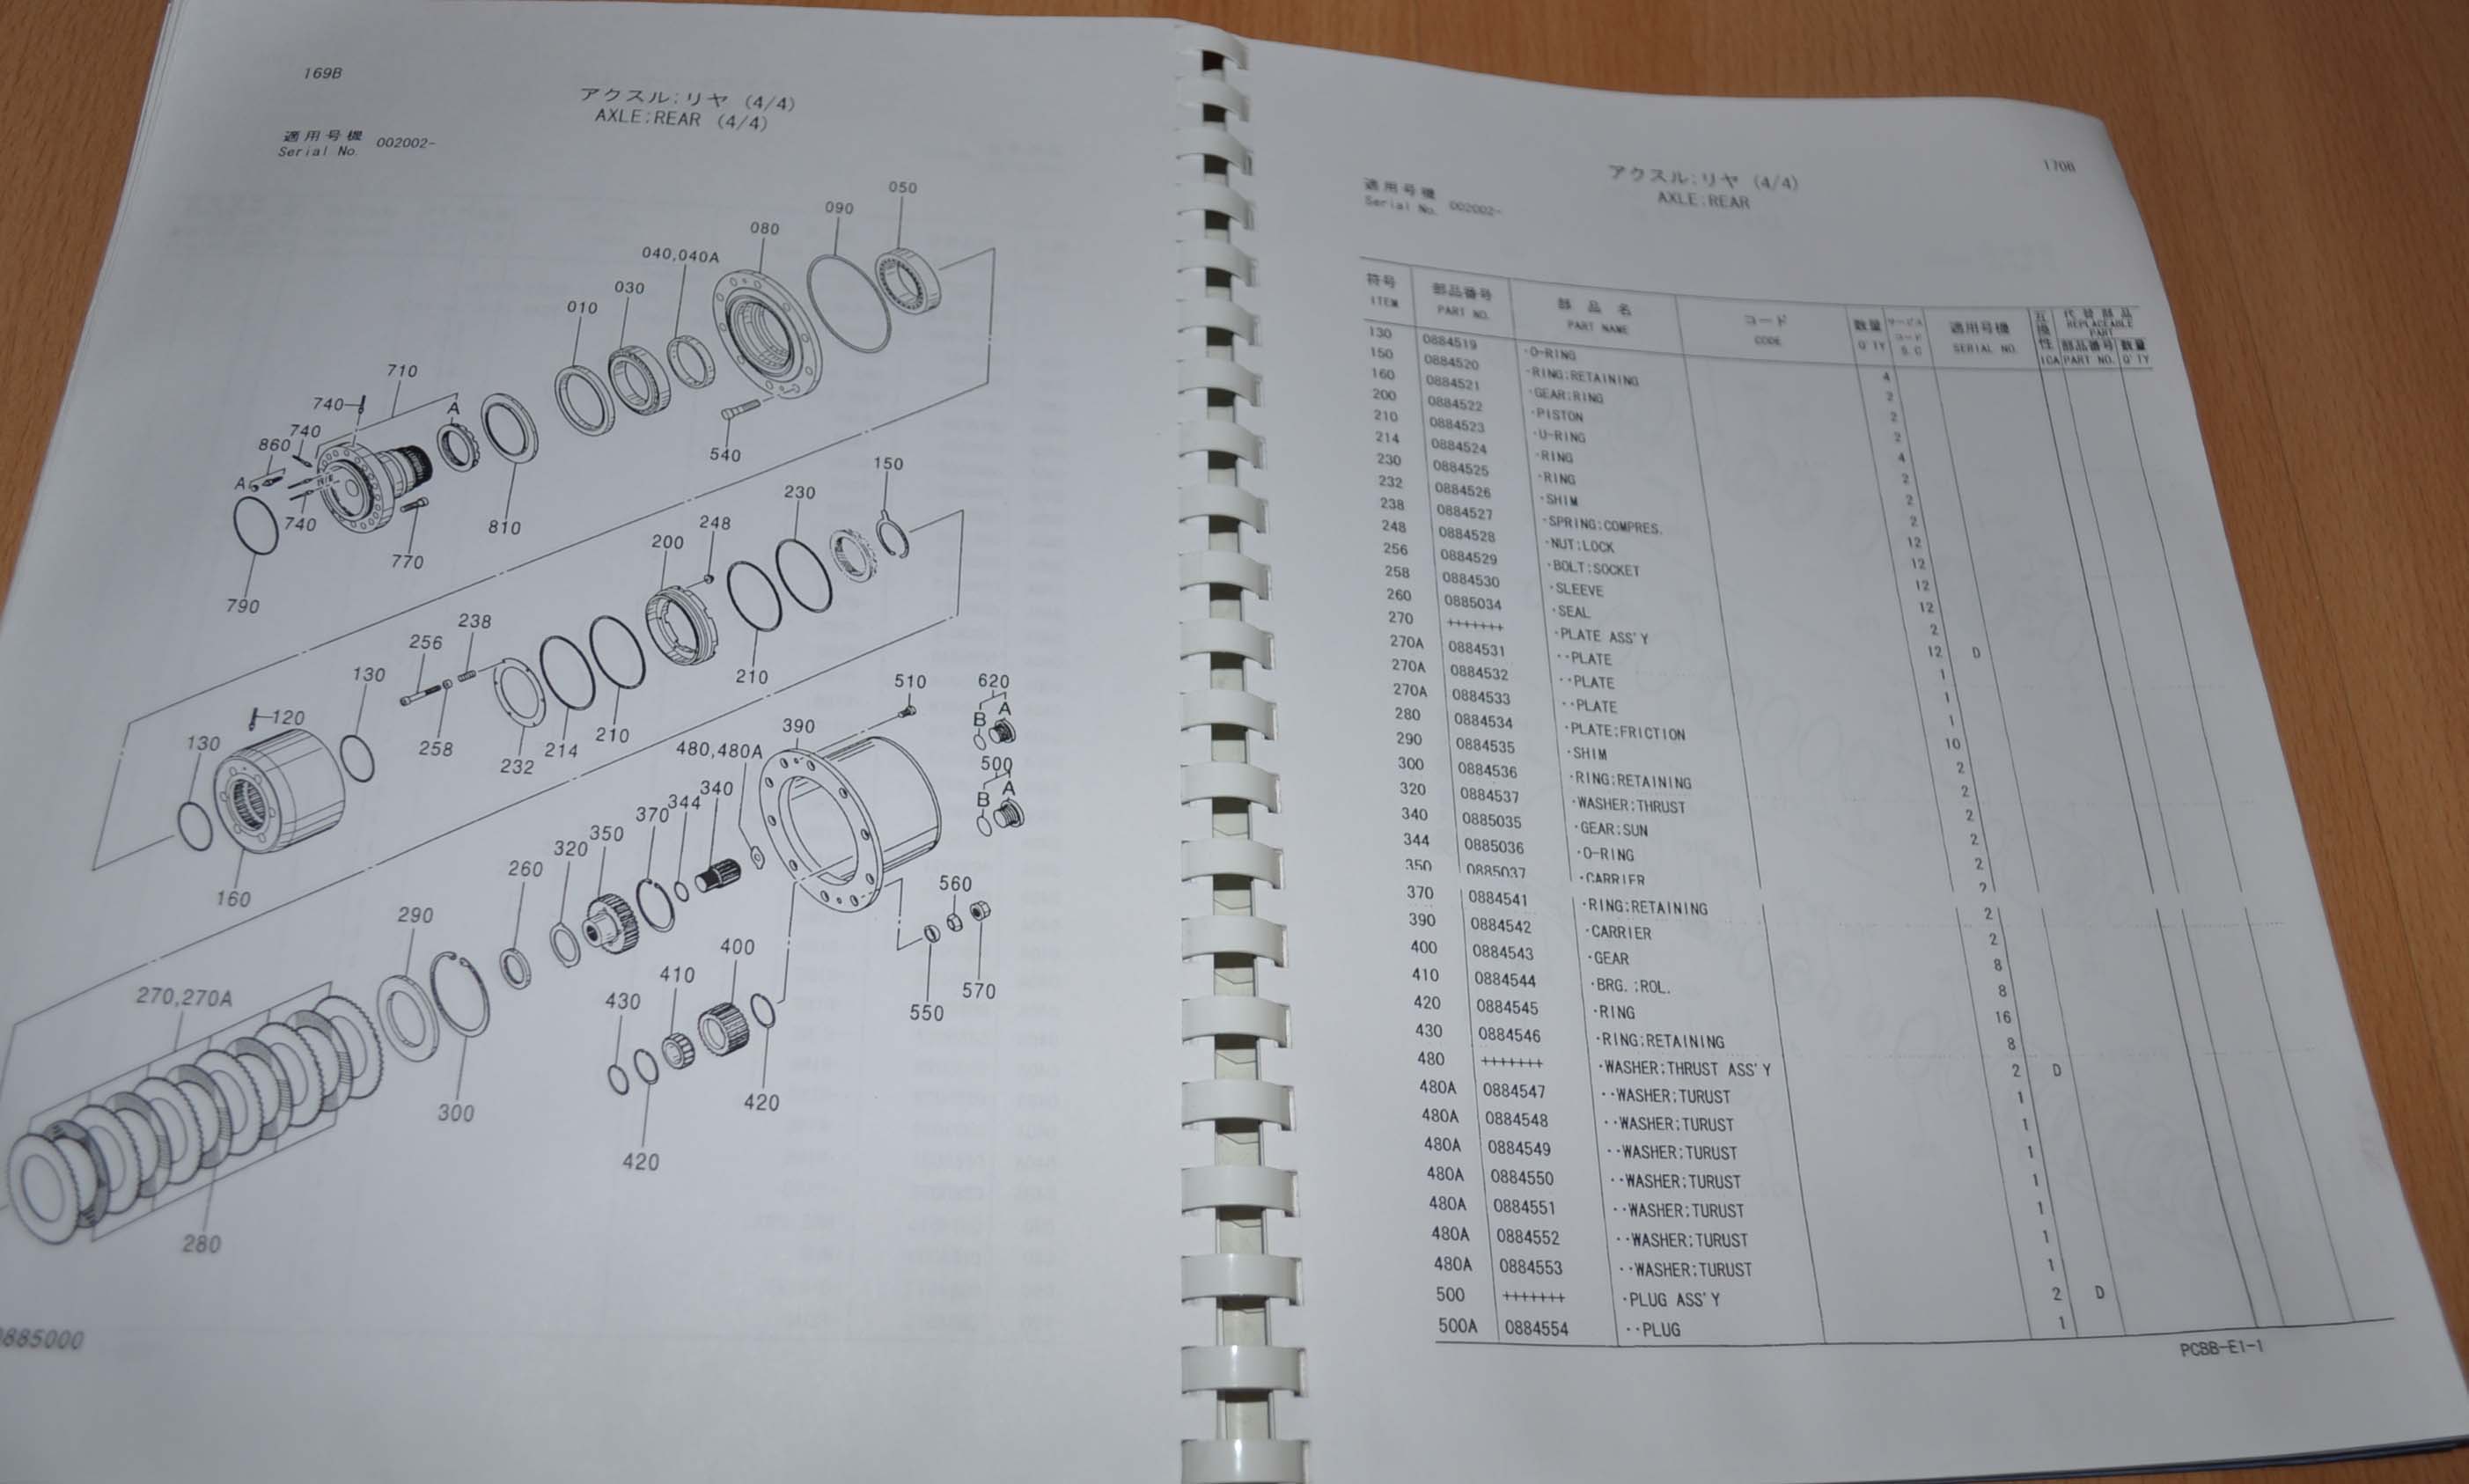 169B
アクスル:リヤ (4/4)
AXLE:REAR (4/4)
適用号機
Serial No. 002002-
050
090
080
040,040A
030
010
710
740
A
740
860
A
740
540
150
810
230
770
248
200
790
238
256
210
130
510
620
A
B
120
390
258
214
210
130
232
480,480A
500
A
B
340
344
370
350
320
160
260
560
290
400
570
410
270,270A
430
550
300
420
420
280
0885000
170B
アクスル:リヤ (4/4)
AXLE:REAR
適用号機
Serial No. 002002-
符号 部品番号 部品名 コード 数量 サービスコード 適用号機 互換性 代替部品
ITEM PART NO. PART NAME CODE Q'TY S.C SERIAL NO. ICA REPLACEABLE PART
部品番号 数量
PART NO. Q'TY
130 0884519 ·O-RING 4
150 0884520 ·RING:RETAINING 2
160 0884521 ·GEAR:RING 2
200 0884522 ·PISTON 2
210 0884523 ·U-RING 4
214 0884524 ·RING 2
230 0884525 ·RING 2
232 0884526 ·SHIM 2
238 0884527 ·SPRING:COMPRES. 12
248 0884528 ·NUT:LOCK 12
256 0884529 ·BOLT:SOCKET 12
258 0884530 ·SLEEVE 12
260 0885034 ·SEAL 2
270 +++++++ ·PLATE ASS'Y 12 D
270A 0884531 ··PLATE 1
270A 0884532 ··PLATE 1
270A 0884533 ··PLATE 1
280 0884534 ·PLATE:FRICTION 10
290 0884535 ·SHIM 2
300 0884536 ·RING:RETAINING 2
320 0884537 ·WASHER:THRUST 2
340 0885035 ·GEAR:SUN 2
344 0885036 ·O-RING 2
350 0885037 ·CARRIER 2
370 0884541 ·RING:RETAINING 2
390 0884542 ·CARRIER 2
400 0884543 ·GEAR 8
410 0884544 ·BRG.:ROL. 8
420 0884545 ·RING 16
430 0884546 ·RING:RETAINING 8
480 +++++++ ·WASHER:THRUST ASS'Y 2 D
480A 0884547 ··WASHER:TURUST 1
480A 0884548 ··WASHER:TURUST 1
480A 0884549 ··WASHER:TURUST 1
480A 0884550 ··WASHER:TURUST 1
480A 0884551 ··WASHER:TURUST 1
480A 0884552 ··WASHER:TURUST 1
480A 0884553 ··WASHER:TURUST 1
500 +++++++ ·PLUG ASS'Y 2 D
500A 0884554 ··PLUG 1
PCBB-E1-1